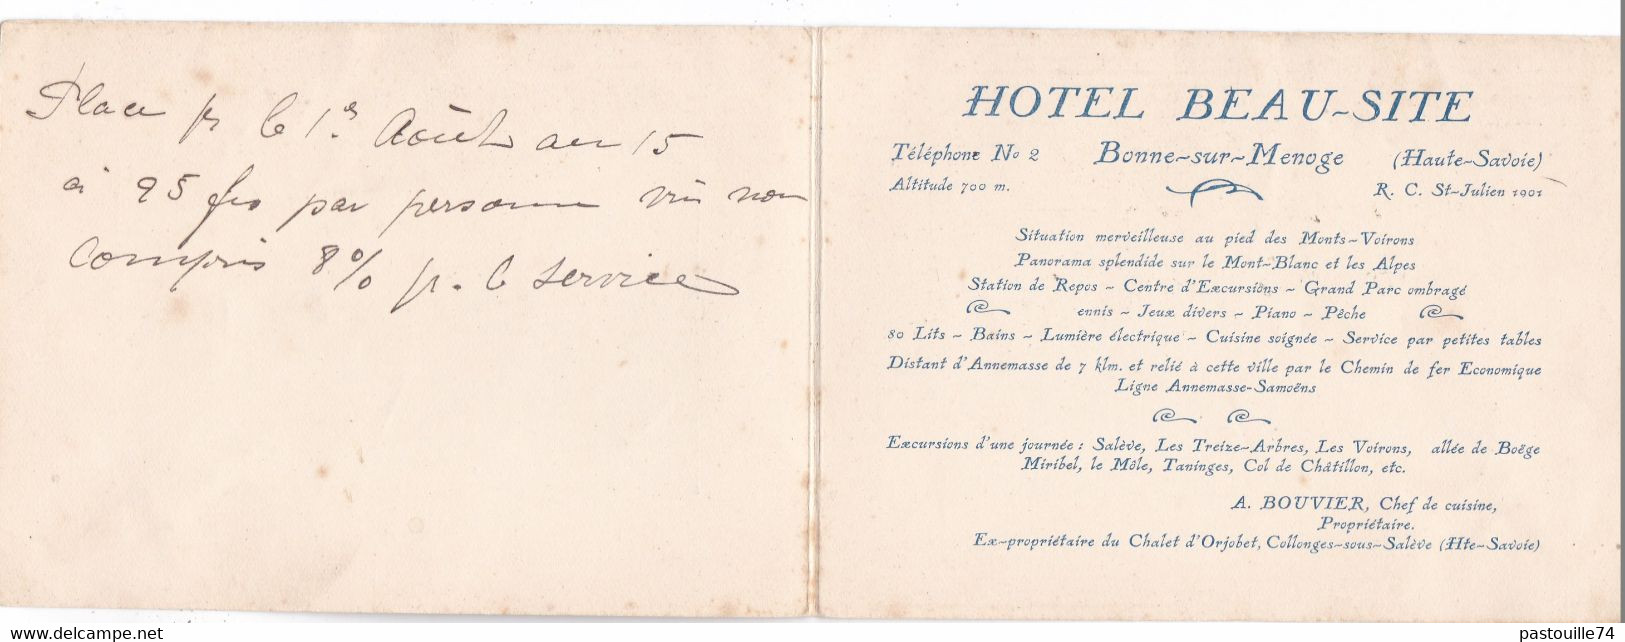 Place pr le 1er Août au 15
à 25 frs par personne vin non
compris 8% pr. le service
HOTEL BEAU-SITE
Téléphone No 2 Bonne-sur-Menoge (Haute-Savoie)
Altitude 700 m. R. C. St-Julien 1901
Situation merveilleuse au pied des Monts-Voirons
Panorama splendide sur le Mont-Blanc et les Alpes
Station de Repos - Centre d'Excursions - Grand Parc ombragé
ennis - Jeux divers - Piano - Pêche
80 Lits - Bains - Lumière électrique - Cuisine soignée - Service par petites tables
Distant d'Annemasse de 7 klm. et relié à cette ville par le Chemin de fer Economique
Ligne Annemasse-Samoëns
Excursions d'une journée : Salève, Les Treize-Arbres, Les Voirons, allée de Boëge
Miribel, le Môle, Taninges, Col de Châtillon, etc.
A. BOUVIER, Chef de cuisine,
Propriétaire.
Ex-propriétaire du Chalet d'Orjobet, Collonges-sous-Salève (Hte-Savoie)
www.delcampe.net
pastouille74